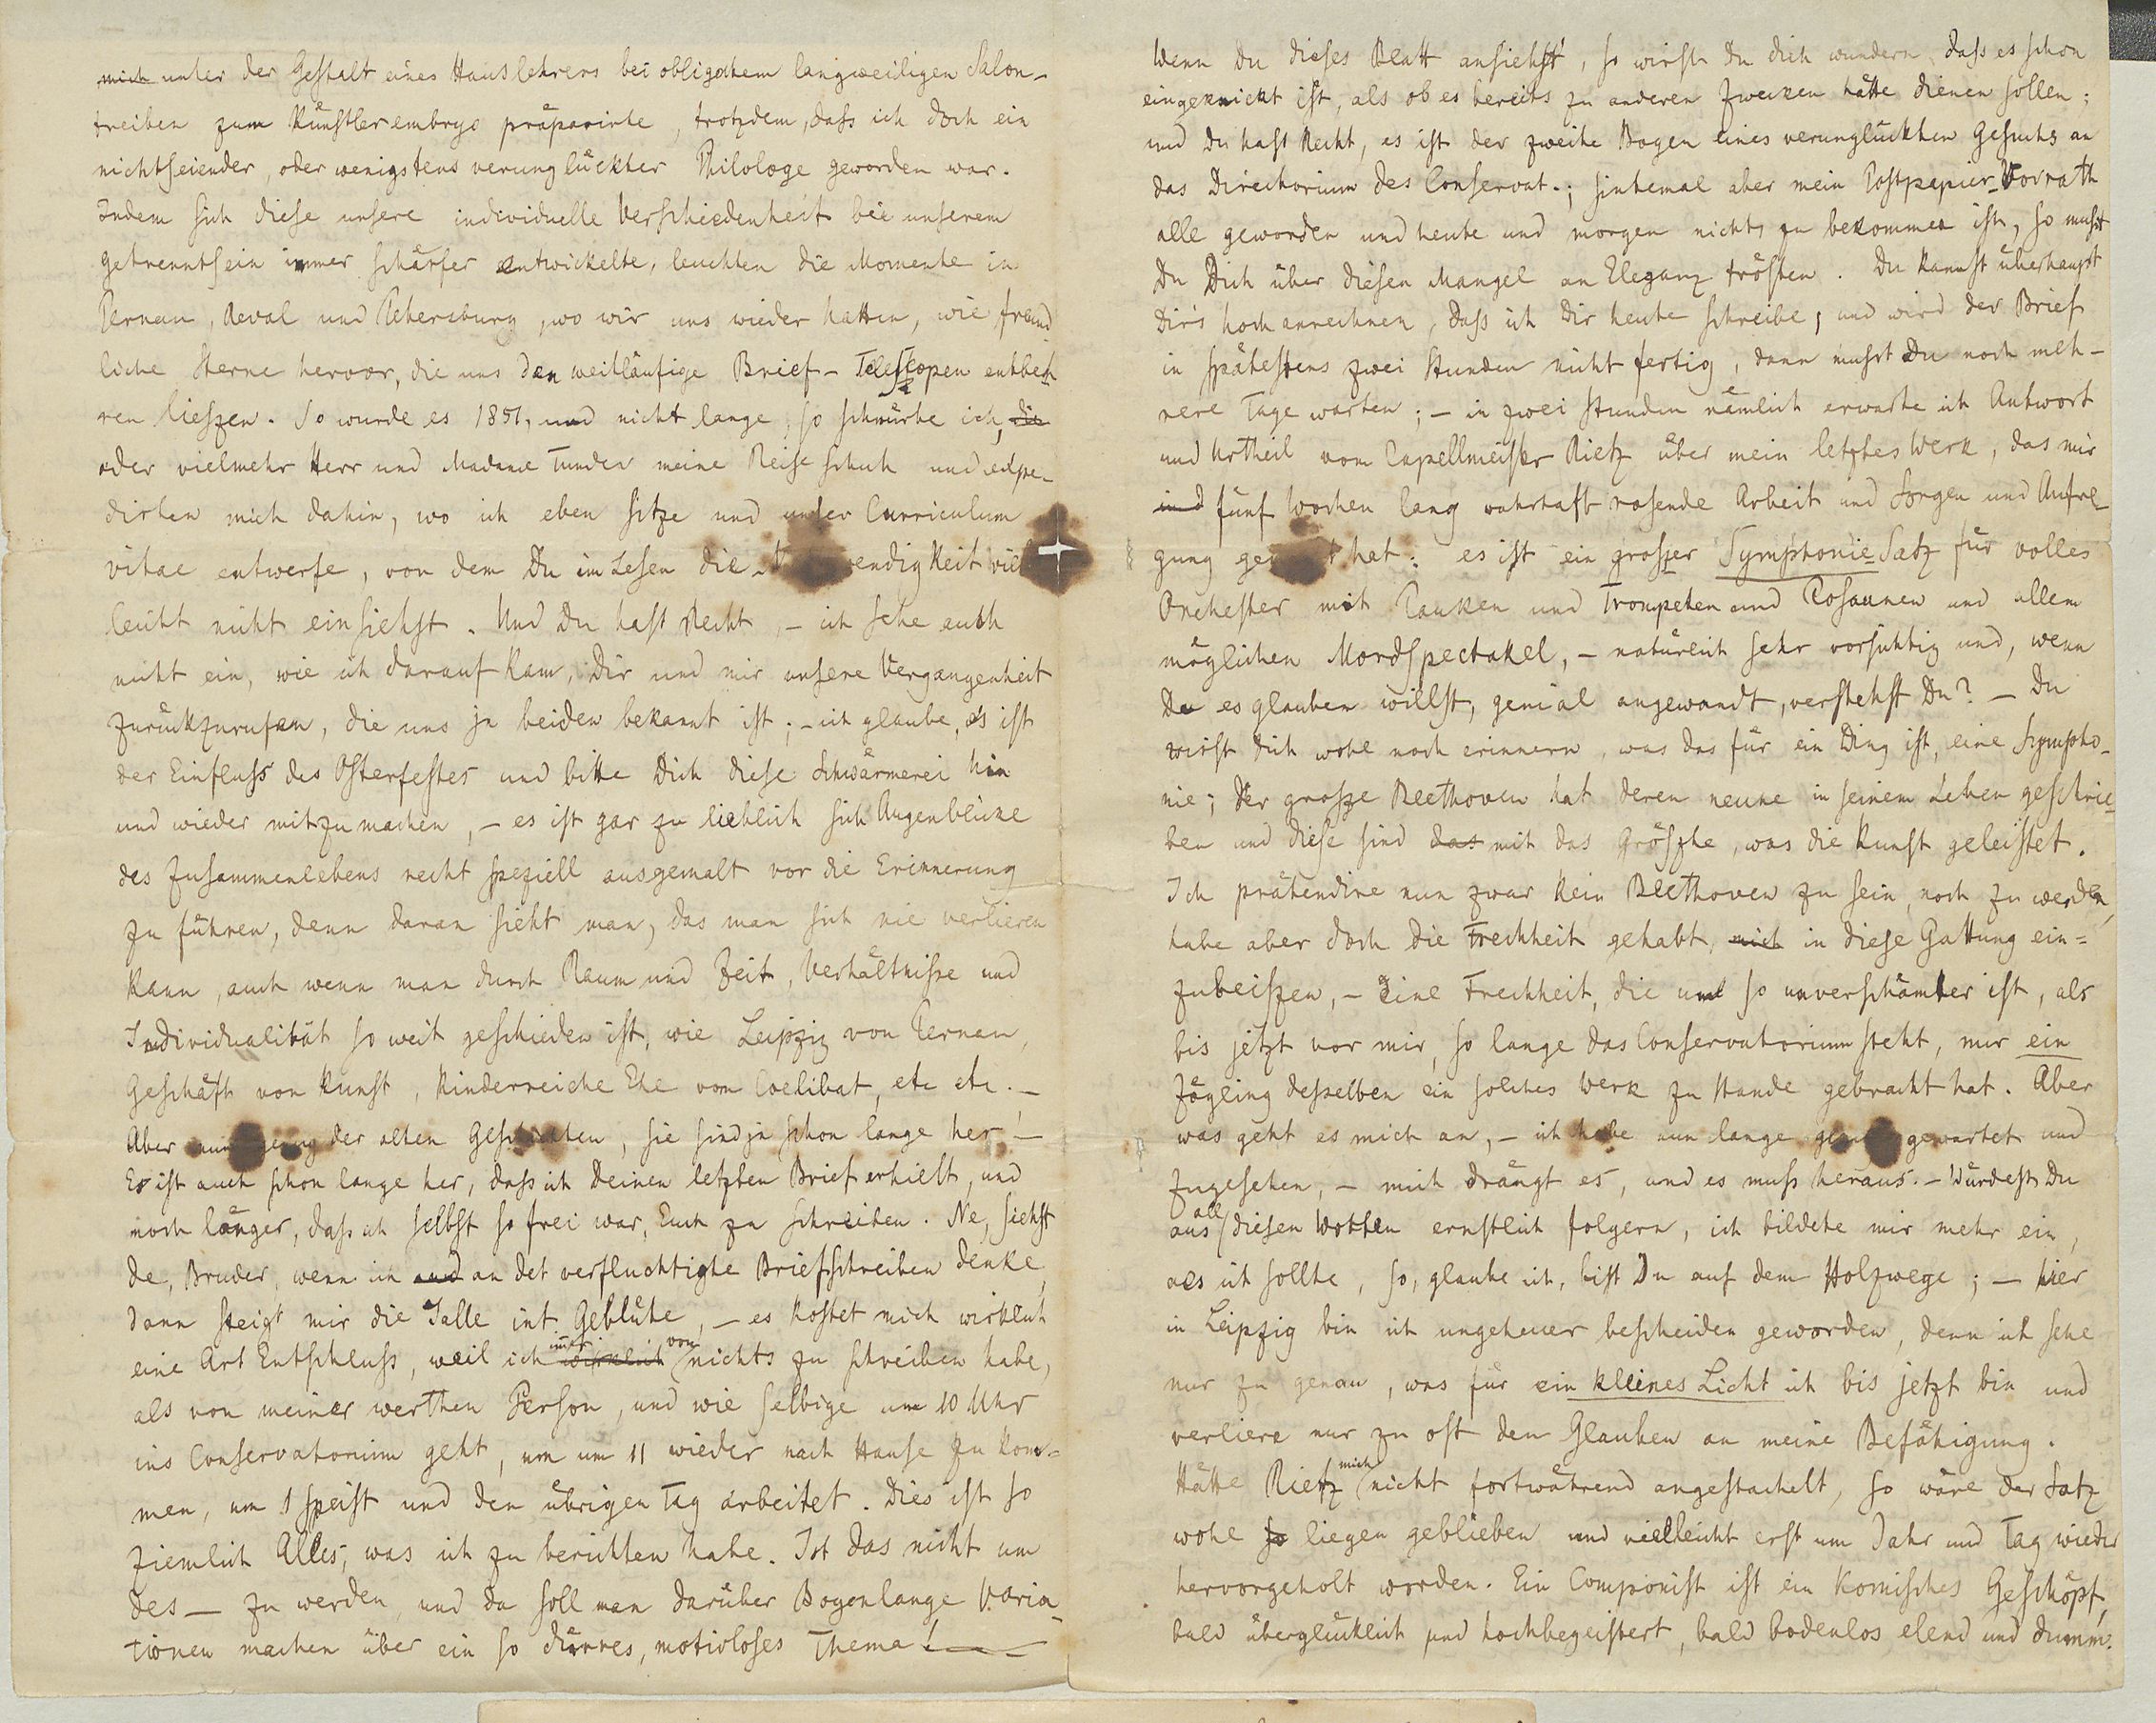 mich unter der Gestalt eines Hauslehrers bei obligatem langweiligen Salon-
treiben zum Künstlerembryo präparirte, trotzdem, dass ich doch ein
nichtseiender, oder wenigstens verunglückter Philologe geworden war.
Indem sich diese unsere individuelle Verschiedenheit bei unserem
getrenntsein immer schärfer entwickelte, leuchten die Momente in
Pernau, Reval und Petersburg, wo wir uns wieder hatten, wie freund
liche Sterne hervor, die uns den weitläufige Brief-Telescopen entbeh
ren lieszen. So wurde es 1851, und nicht lange, so schnürte ich, die
oder vielmehr Herr und Madame Tunder meine Reiseschuh und expe-
dirten mich dahin, wo ich eben sitze und unser Curriculum
vitae entwerfe, von dem Du im Lesen die wendigkeit viel
leicht nicht einsiehst. Und Du hast Recht, - ich sehe auch
nicht ein, wie ich darauf kam, Dir und mir unsere Vergangenheit
zurückzurufen, die uns ja beiden bekannt ist; - ich glaube, es ist
der Einfluss des Osterfestes und bitte Dich diese Schwärmerei hin
und wieder mitzumachen, - es ist gar zu lieblich sich Augenblicke
des Zusammenlebens recht speziell ausgemalt vor die Erinnerung
zu führen, denn daran sieht man, das man sich nie verlieren
kann, auch wenn man durch Raum und Zeit, Verhältnisse und
Individualität so weit geschieden ist, wie Leipzig von Pernau,
Geschäft von Kunst, kinderreiche Ehe vom Coelibat, etc etc. -
Aber nun genug der alten Geschichten, sie sind ja schon lange her! -
Es ist auch schon lange her, dass ich Deinen letzten Brief erhielt, und
noch länger, dass ich selbst so frei war, Euch zu schreiben. Ne, siehst
de, Bruder, wenn ik and an det verfluchtigte Briefschreiben denke,
dann steigt mir die Jalle int Geblüte, - es kostet mich wirklich
eine Art Entschluss, weil ich wirklich immer von nichts zu schreiben habe,
als von meiner werthen Person, und wie selbige um 10 Uhr
ins Conservatorium geht, um um 11 wieder nach Hause zu kom-
men, um 1 speist und den übrigen Tag arbeitet. Dies ist so
ziemlich Alles, was ich zu berichten habe. Ist das nicht um
des - zu werden, und da soll man darüber Bogenlange Varia-
tionen machen über ein so dürres, motivloses Thema! -
Wenn Du dieses Blatt ansiehst, so wirst Du dich wundern, dass es schon
eingeknickt ist, als ob es bereits zu anderen Zwecken hätte dienen sollen;
und Du hast Recht, es ist der zweite Bogen eines verunglückten Gesuchs an
das Directorium des Conservat.; sintemal aber mein Postpapier-Vorrath
alle geworden und heute und morgen nichts zu bekommen ist, so musst
Du Dich über diesen Mangel an Eleganz trösten. Du kannst überhaupt
Dir's hoch anrechnen, dass ich Dir heute schreibe, und wird der Brief
in spätestens zwei Stunden nicht fertig, dann musst Du noch meh-
rere Tage warten; - in zwei Stunden nämlich erwarte ich Antwort
und Urtheil vom Capellmeister Rietz über mein letztes Werk, das mir
und fünf Wochen lang wahrhaft rasende Arbeit und Sorgen und Aufre
gung hat: es ist ein groszer Symphonie-Satz für volles
Orchester mit Pauken und Trompeten und Posaunen und allem
möglichen Mordspectakel, - natürlich sehr vorsichtig und, wenn
Du es glauben willst, genial angewandt, verstehst Du? - Du
wirst dich wohl noch erinnern, was das für ein Ding ist, eine Sympho-
nie; der grosze Beethoven hat deren neune in seinem Leben geschrie-
ben und diese sind das mit das Gröszte, was die Kunst geleistet.
Ich prätendire nun zwar kein Beethoven zu sein, noch zu werden,
habe aber doch die Frechheit gehabt, mich in diese Gattung ein-
zubeiszen, - eine Frechheit, die um so unverschämter ist, als
bis jetzt vor mir, so lange das Conservatorium steht, nur ein
Zögling desselben ein solches Werk zu Stande gebracht hat. Aber
was geht es mich an, - ich habe nun lange genug gewartet und
zugesehen, - mich drängt es, und es muss heraus. - Würdest Du
aus all diesen Worten ernstlich folgern, ich bildete mir mehr ein,
als ich sollte, so, glaube ich, bist Du auf dem Holzwege; - hier
in Leipzig bin ich ungeheuer bescheiden geworden, denn ich sehe
nur zu genau, was für ein kleines Licht ich bis jetzt bin und
verliere nur zu oft den Glauben an meine Befähigung.
Hätte Rietz mich nicht fortwährend angestachelt, so wäre der Satz
wohl so liegen geblieben und vielleicht erst um Jahr und Tag wieder
hervorgeholt worden. Ein Componist ist ein komisches Geschöpf,
bald überglücklich und hochbegeistert, bald bodenlos elend und dumm.